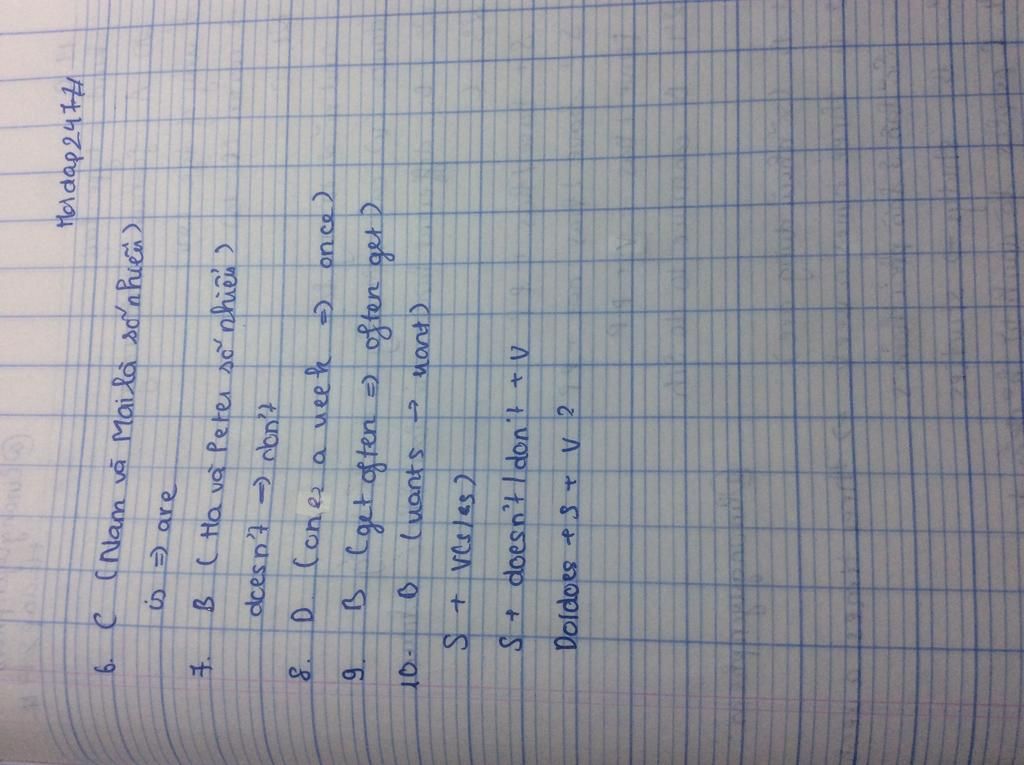 Hoidap247
6. C (Nam và Mai là số nhiều)
is => are
7. B (Ha và Peter số nhiều)
doesn't -> don't
8. D (ones a week => once)
9. B (get often => often get)
10. B (wants -> want)
S + V(s/es)
S + doesn't/don't + V
Do/does + S + V ?